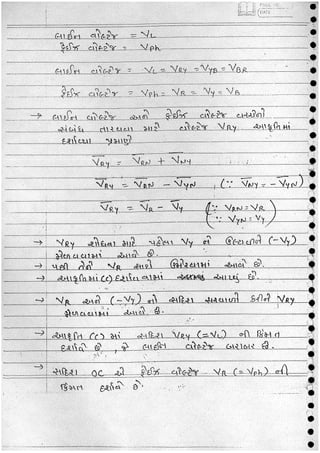 PAGE NO.
DATE
લાઈન વોલ્ટેજ = VL
ફેઈઝ વોલ્ટેજ = Vph
લાઈન વોલ્ટેજ = VL = VRY = VYB = VBR
ફેઈઝ વોલ્ટેજ = Vph = VR = VY = VB
→ લાઈન વોલ્ટેજ અને ફેઈઝ વોલ્ટેજ વચ્ચેનો
સંબંધ તારવવા માટે વોલ્ટેજ VRY આકૃતિમાં
દર્શાવ્યા પ્રમાણે
VRY = VRN + VNY
VRY = VRN - VYN , (∵ VNY = - VYN)
VRY = VR - VY (∵ VRN = VR
∵ VYN = VY)
→ VRY શોધવા માટે પહેલા VY ને ઉલટાવીને (-VY)
મેળવવામાં આવે છે.
→ પછી તેને VR સાથે ઉમેરવામાં આવે છે.
→ આકૃતિમાં (c) દર્શાવવામાં આવ્યું છે.
→ VR અને (-VY) નો સદિશ સરવાળો કરીને VRY
મેળવવામાં આવે છે.
→ આકૃતિ (c) માં સદિશ VRY (=VL) ની કિંમત
દર્શાવે છે, જે લાઈન વોલ્ટેજ બરાબર છે.
→ સદિશ OC એ ફેઈઝ વોલ્ટેજ VR (=Vph) ની
કિંમત દર્શાવે છે.